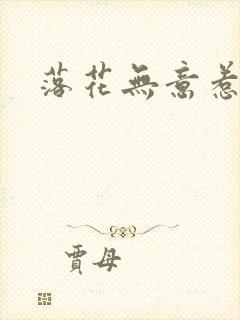 落花無意惹
賈母